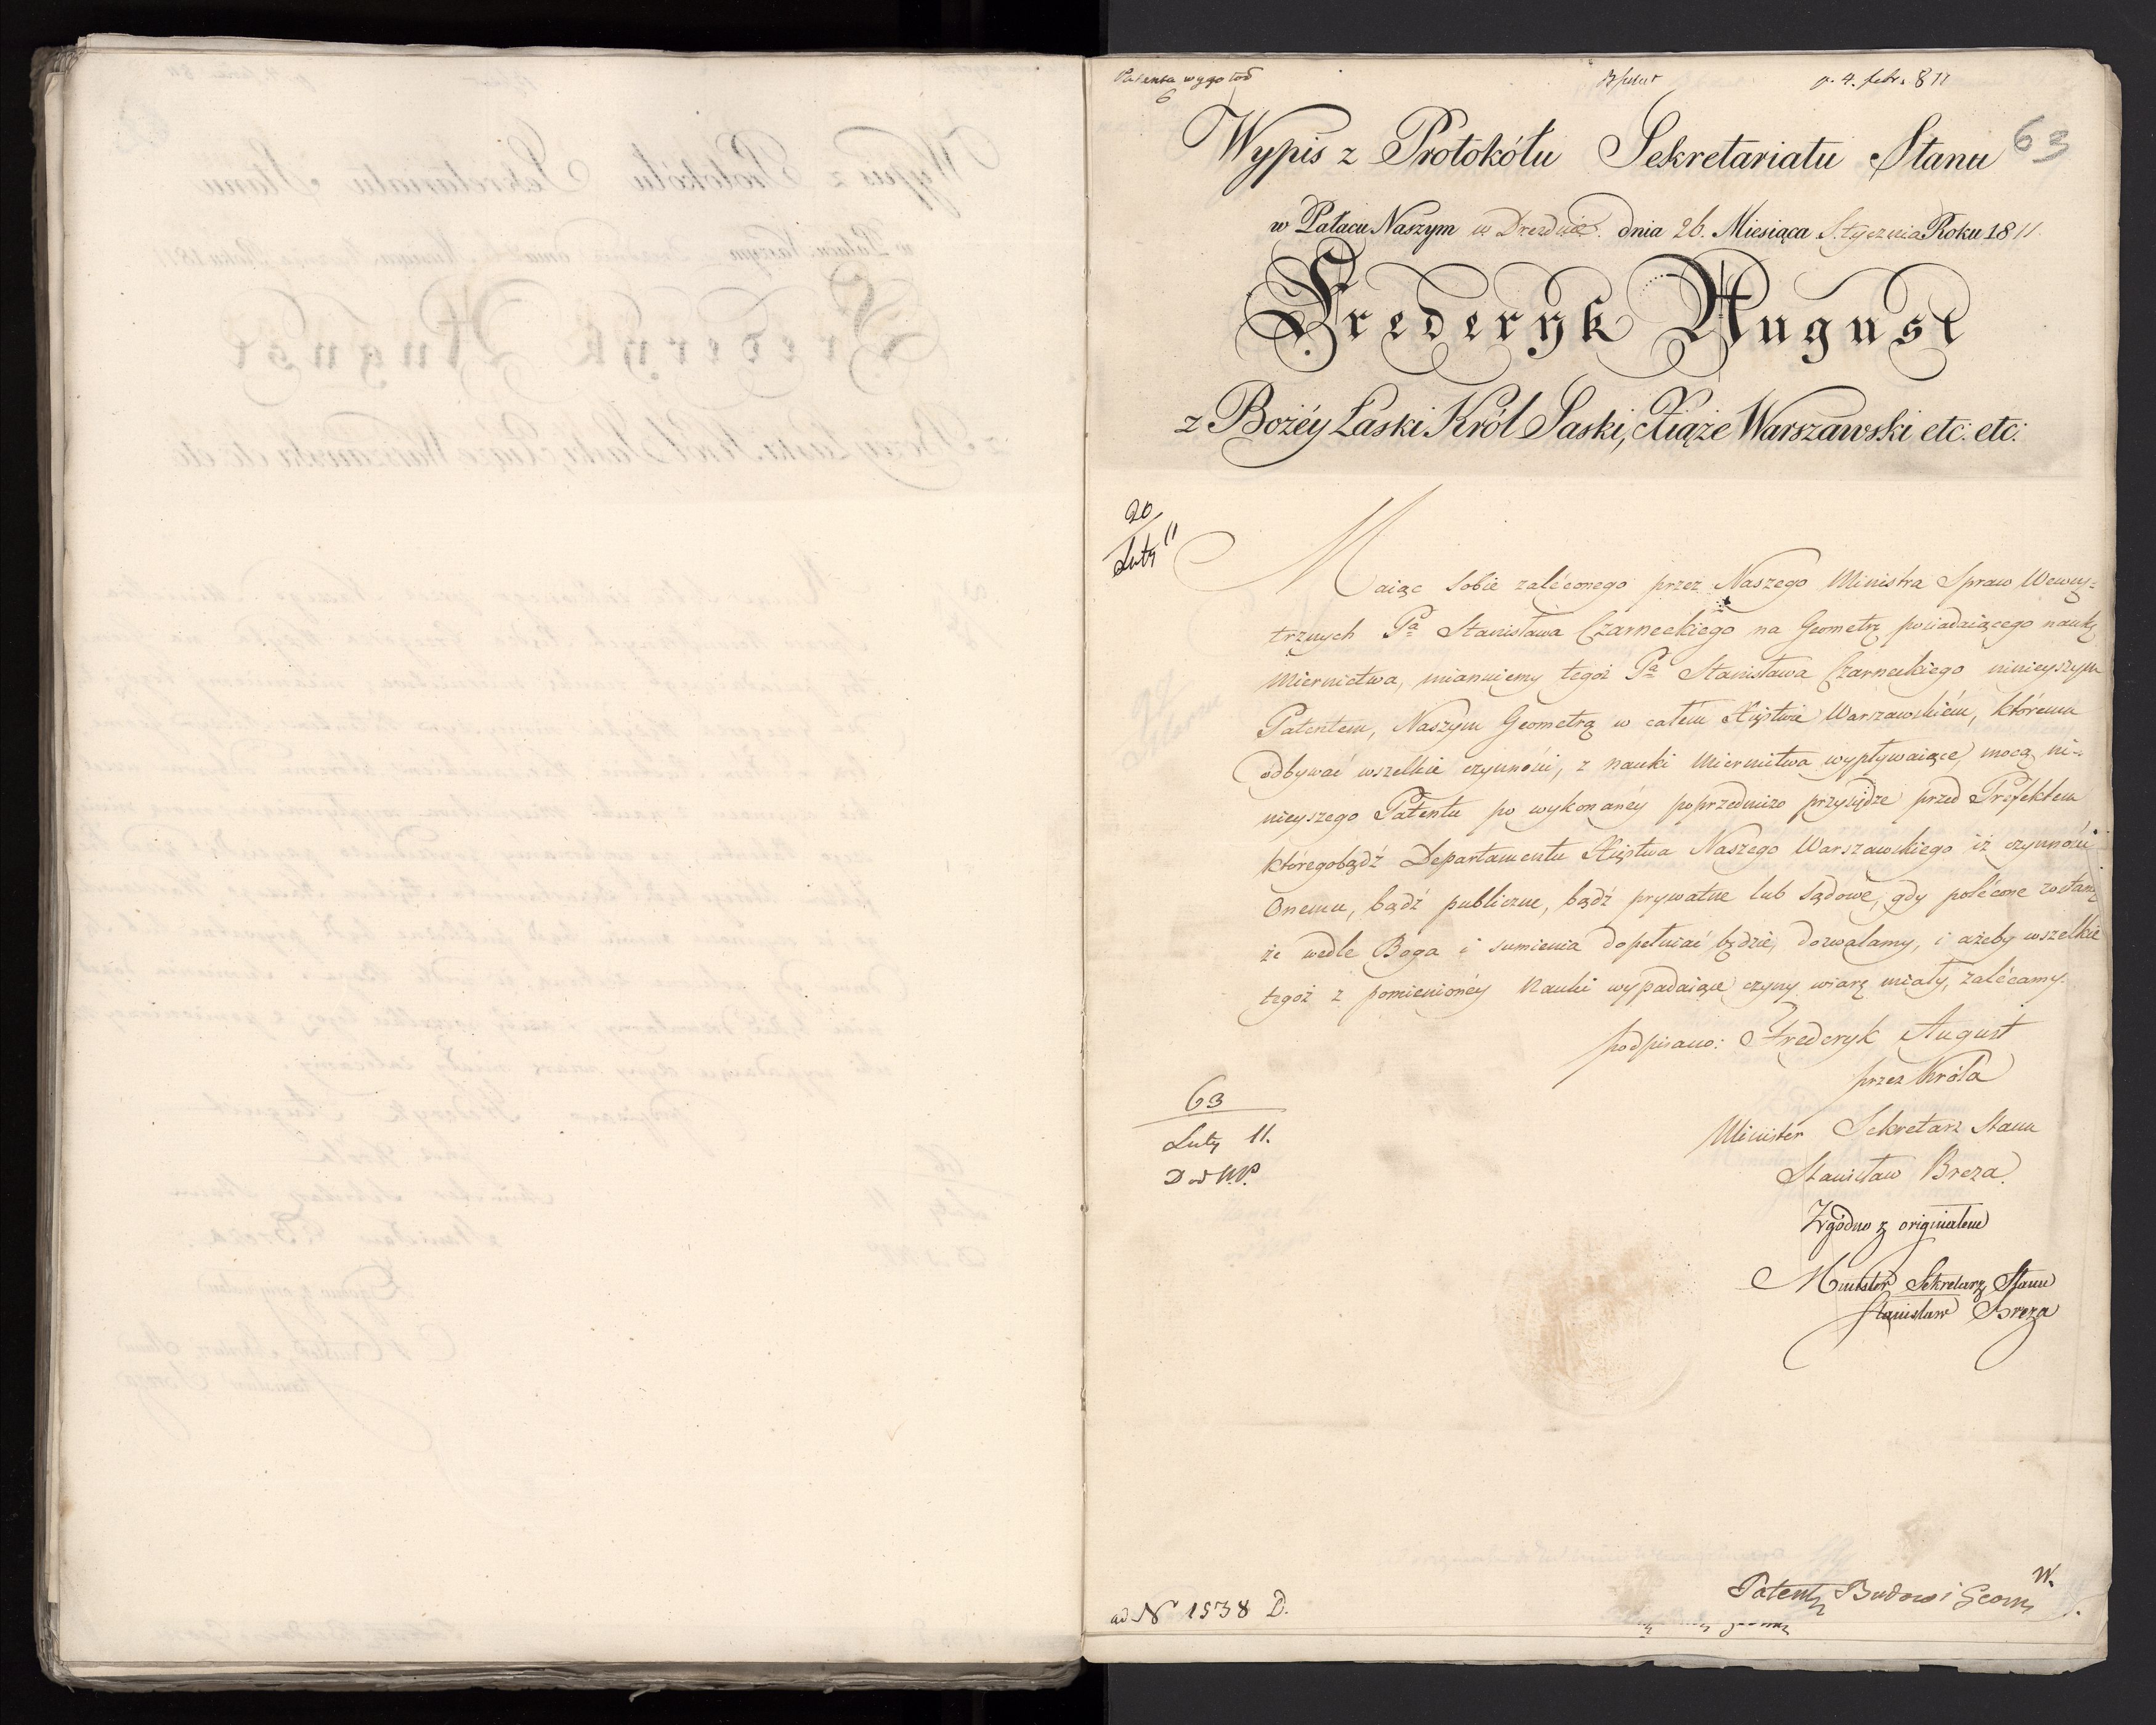 Patenta wygotod
6
p. 4. febr. 811
63
Wypis z Protokółu Sekretariatu Stanu
w Pałacu Naszym w Dreźnie. dnia 26. Miesiąca Stycznia Roku 1811.
Frederyk August
z Bożéy Łaski Król Saski, Xiąże Warszawski etc: etc:
20
Luty 11
Maiąc sobie zaléconego przez Naszego Ministra Spraw Wewnę-
trznych Pa Stanisława Czarneckiego na Geometrę posiadaiącego naukę
Miernictwa, mianuiemy tegoż Pa Stanisława Czarneckiego ninieyszym
Patentem, Naszym Geometrą w całém Xięstwie Warszawskiém, któremu
odbywać wszelkie czynności, z nauki Miernictwa wypływaiące, mocą ni-
nieyszego Patentu po wykonanéy poprzedniczo przysiędze przed Prefektem
któregobądź Departamentu Xięstwa Naszego Warszawskiego iż czynności
Onemu, bądź publiczne, bądź prywatne lub sądowe, gdy polécone zostaną
że wedle Boga i sumienia dopełniać będzie, dozwalamy, i ażeby wszelkie
tegoż z pomienionéy Nauki wypadaiące czyny wiarę miały, zalécamy.
podpisano: Fréderyk August
przez Króla
Minister Sekretarz Stanu
Stanisław Breza.
63
Luty 11.
D od W.P.
Zgodno z originałem
Minister Sekretarz Stanu
Stanisław Breza
ad N 1538 D.
W.
Patenty Budow i Geom